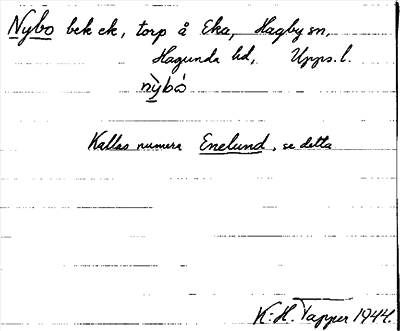 Nybo bek ek, torp å Eka, Hagby sn,
Hagunda hd, Upps. l.
nỳbó
Kallas numera Enelund, se detta
K.-H. Tapper 1944.